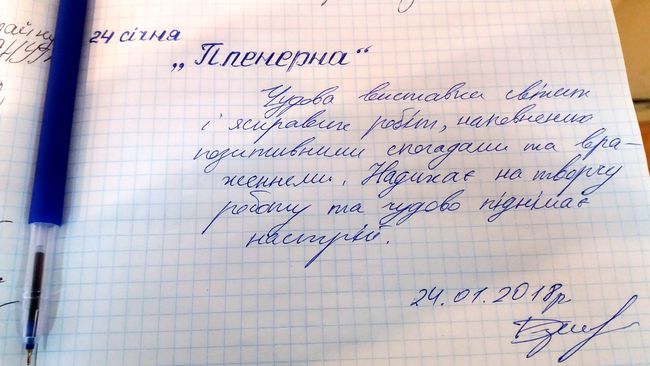 24 січня
„Пленерна“
Чудова виставка світлих
і яскравих робіт, наповнених
позитивними спогадами та вра-
женнями. Надихає на творчу
роботу та чудово піднімає
настрій.
24.01.2018р